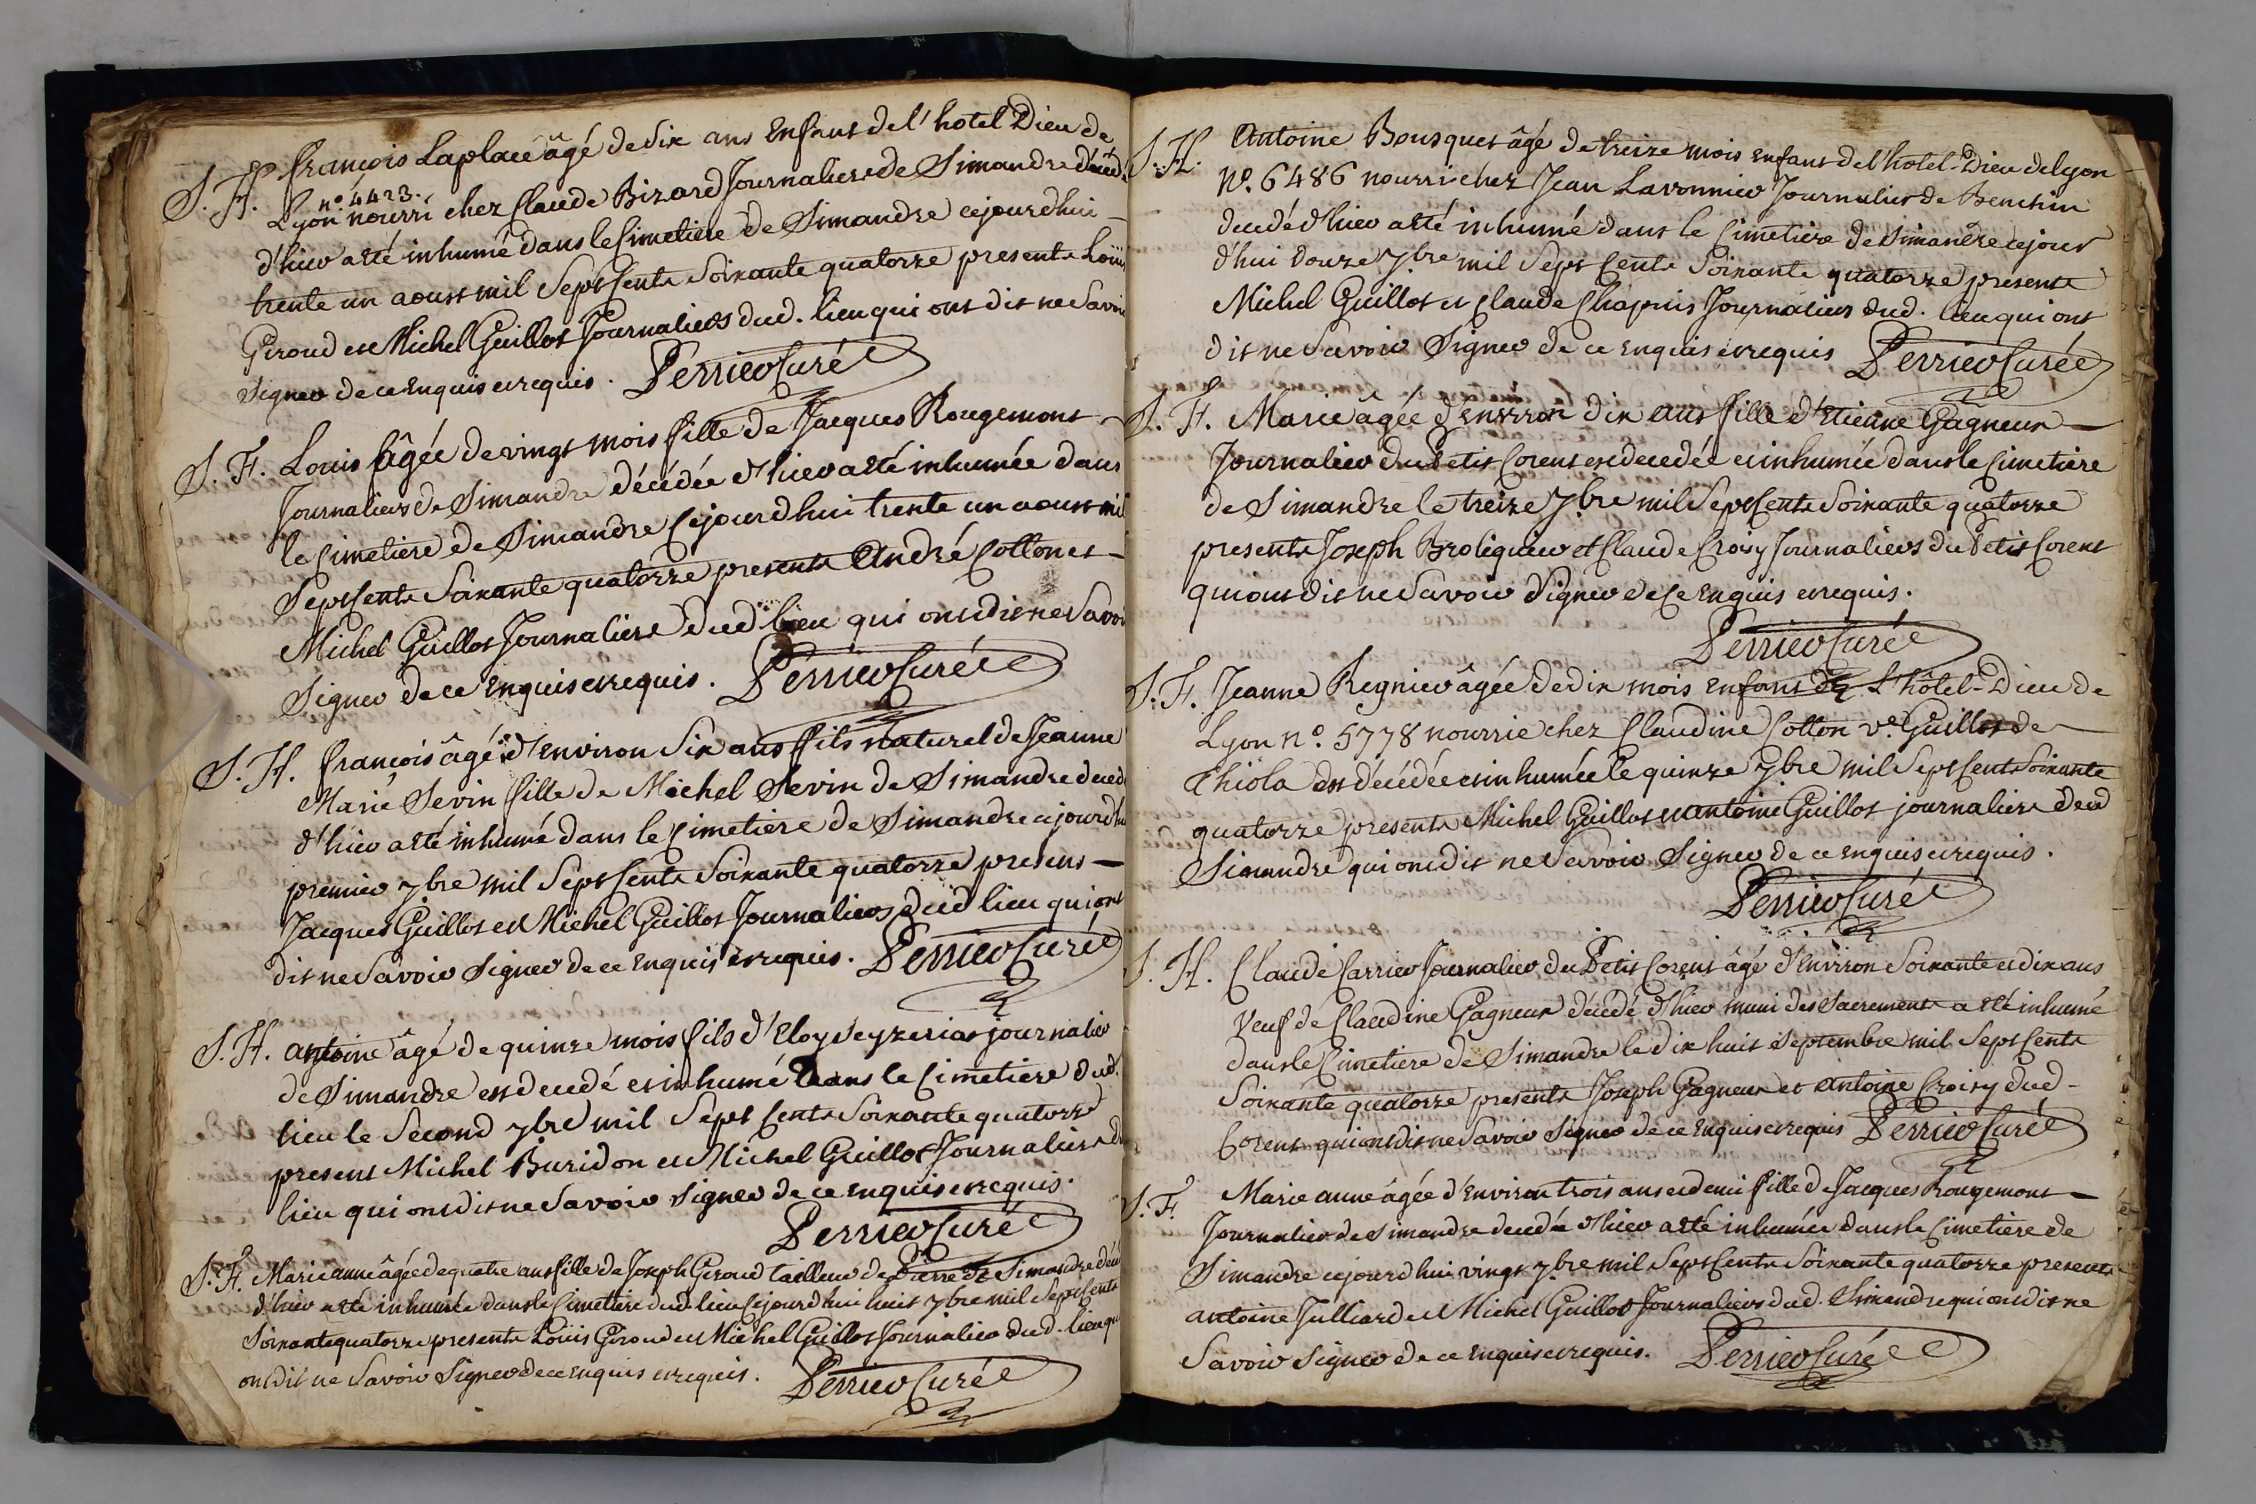 S. H. françois Laplace âgé de dix ans Enfant de l'hotel Dieu de
n° 4423.
Lyon nourri chez Claude Bizard Journaliere de Simandre décéd
d'hier a été inhumé dans le Cimetiere de Simandre cejourdhui
trente un aoust mil Sept Cents Soixante quatorze presents Louis
Giroud et Michel Guillot Journaliers dud. lieu qui ont dit ne Savoir
Signer de ce Enquis et requis. Perrier Curé
S. F. Louise âgée de vingt mois fille de Jacques Rougemont
Journaliers de Simandre décédée d'hier a été inhumée dans
le Cimetiere de Simandre Cejourdhui trente un aoust mil
Sept Cents Soixante quatorze presents André Cotton et
Michel Guillot Journaliers dud lieu qui ont dit ne Savoir
Signer de ce enquis et requis. Perrier Curé
S. H. françois âgé d'environ Six ans fils naturel de Jeanne
Marie Sevin fille de Michel Sevin de Simandre deced
d'hier a été inhumé dans le Cimetiere de Simandre cejourdhu
premier 7bre mil Sept Cents Soixante quatorze presens
Jacques Guillot et Michel Guillot Journaliers dud lieu qui ont
dit ne Savoir Signer de ce Enquis et requis. Perrier Curé
S. H. antoine âgé de quinze mois fils d'Eloy Seyzeriat journalier
de Simandre est decedé et inhumé dans le Cimetiere dud.
lieu le Second 7bre mil Sept Cents Soixante quatorze
present Michel Buridon et Michel Guillot Journaliers du
lieu qui ont dit ne Savoir Signer de ce enquis et requis.
Perrier Curé
S. F. Marie anne âgée de quatre ans fille de Joseph Giroud tailleur de Pierre de Simandre déced
d'hier a été inhumée dans le Cimetiere dud lieu Cejourdhui huit 7bre mil Sept Cents
Soixante quatorze presents Louis Giroud et Michel Guillot Journalier dud. lieu qui
ont dit ne Savoir Signer de ce enquis et requis. Perrier Curé
S. H. Antoine Bousquet âgé de treize mois enfant de l'hotel-Dieu de lyon
N°. 6486 nourri chez Jean Lavonnier Journalier de
decedé d'hier a été inhumé dans le Cimetiere de Simandre cejour
d'hui douze 7bre mil Sept Cents Soixante quatorze presents
Michel Guillot et Claude Chapuis Journaliers dud. lieu qui ont
dit ne Savoir Signer de ce enquis et requis Perrier Curé
S. F. Marie âgée d'environ dix ans fille d'Etienne Gagneur
Journalier du Petit Corent est decedée et inhumée dans le Cimetiere
de Simandre le treize 7bre mil Sept Cents Soixante quatorze
presents Joseph Broliquier et Claude Croisy Journaliers du Petit Corent
qui ont dit ne Savoir Signer de Ce enquis et requis.
Perrier Curé
S. F. Jeanne Regnier âgée de dix mois enfant de L'hôtel-Dieu de
Lyon n°. 5778 nourrie chez Claudine Cotton ve. Guillot de
Thiola est décédée et inhumée le quinze 7bre mil Sept Cents Soixante
quatorze presents Michel Guillot et antoine Guillot journaliers dud
Simandre qui ont dit ne Savoir Signer de ce enquis et requis.
Perrier Curé
S. H. Claude Carrier Journalier du Petit Corent âgé d'environ Soixante et dix ans
Veuf de Claudine Gagneur décédé d'hier muni des Sacrements a été inhumé
dans le Cimetiere de Simandre le dix huit Septembre mil Sept Cents
Soixante quatorze presents Joseph Gagneur et antoine Croisy dud
Corent qui ont dit ne Savoir Signer de ce Enquis et requis Perrier Curé
S. F. Marie anne âgée d'environ trois ans et demi fille de Jacques Rougemont
Journalier de Simandre decedée d'hier a été inhumée dans le Cimetiere de
Simandre cejourdhui vingt 7bre mil Sept Cents Soixante quatorze presents
antoine Julliard et Michel Guillot Journaliers dud. Simandre qui ont dit ne
Savoir Signer de ce enquis et requis. Perrier Curé